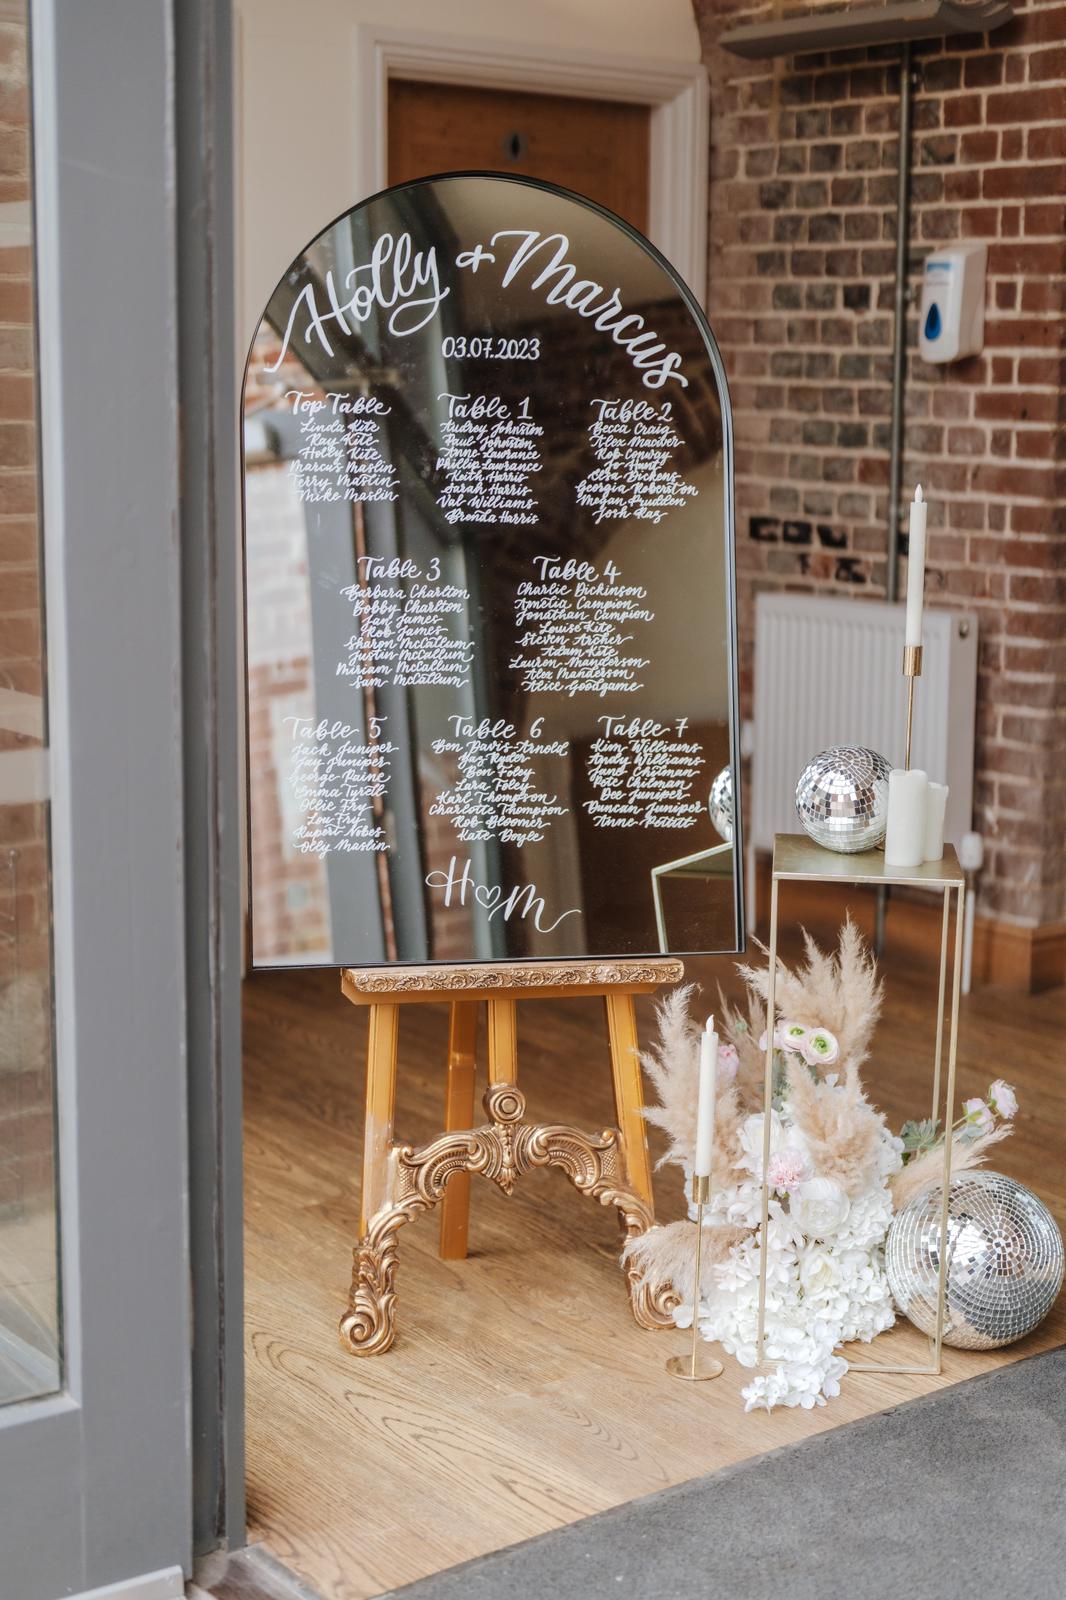 Holly + Marcus
03.07.2023
Top Table
Linda Kite
Ray Kite
Holly Kite
Marcus Maslin
Terry Maslin
Mike Maslin
Table 1
Audrey Johnston
Paul Johnston
Anne Lawrance
Phillip Lawrance
Keith Harris
Sarah Harris
Val Williams
Brenda Harris
Table 2
Becca Craig
Alex
Rob Conway
Jo Hunt
Elsa Dickens
Georgia Roberston
Megan Prudden
Josh Ray
Table 3
Barbara Charlton
Bobby Charlton
Jan James
Rob James
Sharon McCallum
Justin McCallum
Miriam McCallum
Sam McCallum
Table 4
Charlie Dickinson
Amelia Campion
Jonathan Campion
Louise Kite
Steven Archer
Adam Kite
Lauren Manderson
Alex Manderson
Alice Goodgame
Table 5
Jack Juniper
Jay Juniper
George Paine
Emma Tyrell
Ollie Fry
Lou Fry
Rupert Nobes
Olly Maslin
Table 6
Ben Davis-Arnold
Jaz Ryder
Ben Foley
Lara Foley
Karl Thompson
Charlotte Thompson
Rob Bloomer
Kate Doyle
Table 7
Kim Williams
Andy Williams
Jane Chitman
Pete Chitman
Dee Juniper
Duncan Juniper
Anne
H♡M